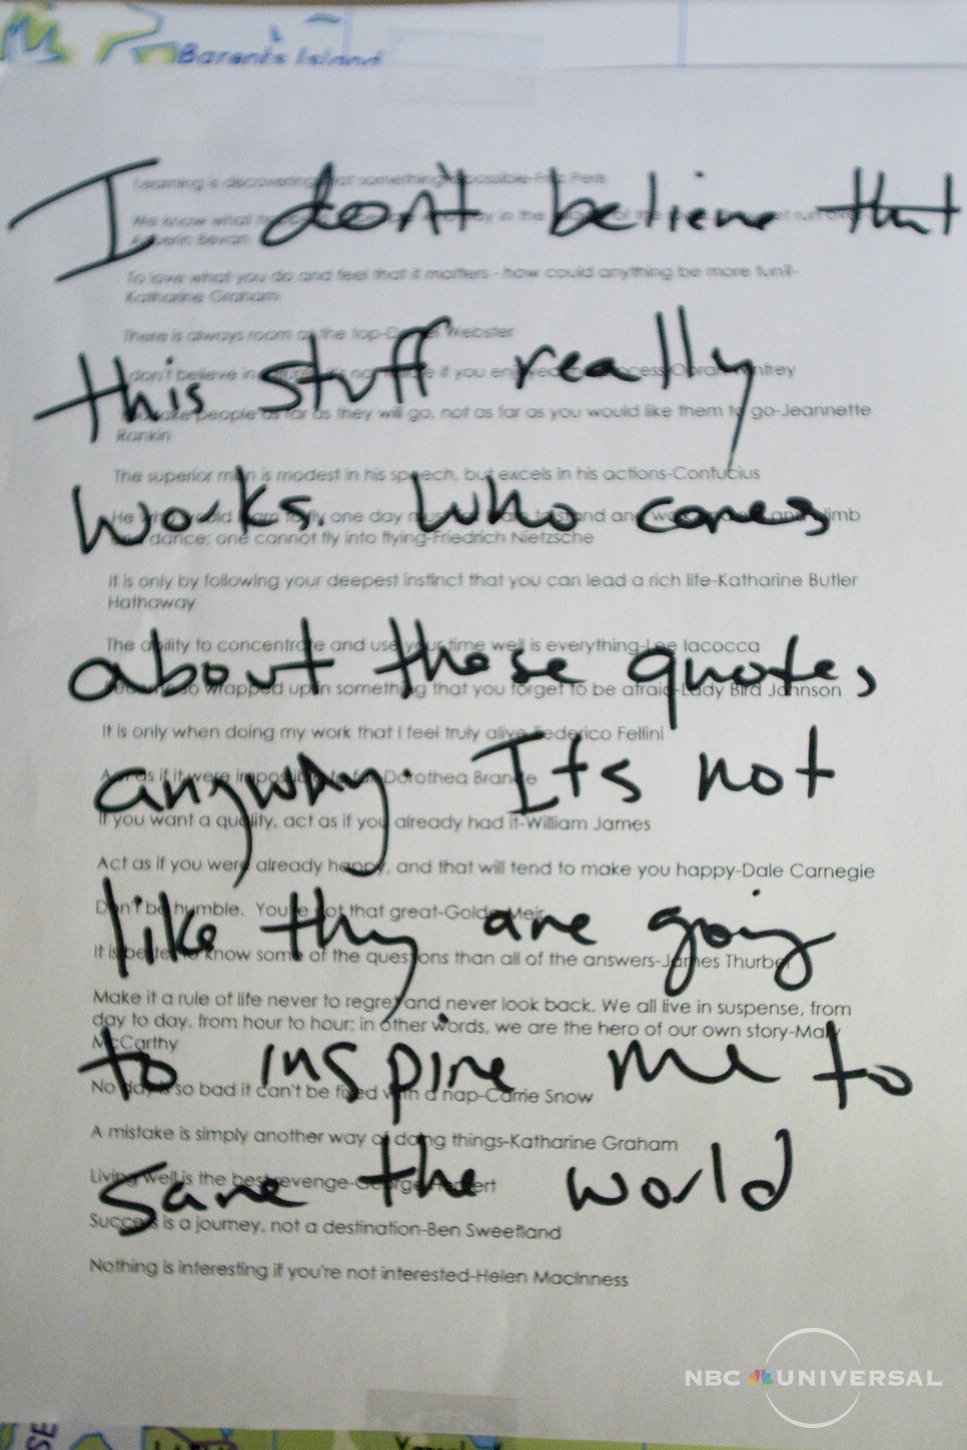 Barents Island
Learning is discovering that something is possible-Fritz Perls
I don't believe that
We know what in the of the
Aneurin Bevan
To love what you do and feel that it matters - how could anything be more fun?-
Katharine Graham
There is always room at the top-Daniel Webster
this stuff really
I don't believe in if you enjoyed the process-Oprah Winfrey
You take people as far as they will go, not as far as you would like them to go-Jeannette
Rankin
The superior man is modest in his speech, but excels in his actions-Confucius
works. Who cares
He who would learn to fly one day must to stand and and climb
and dance; one cannot fly into flying-Friedrich Nietzsche
It is only by following your deepest instinct that you can lead a rich life-Katharine Butler
Hathaway
The ability to concentrate and use your time well is everything-Lee Iacocca
about these quotes
so wrapped upon something that you forget to be afraid-Lady Bird Johnson
It is only when doing my work that I feel truly alive-Federico Fellini
anyway. Its not
Act as if it were impossible to fail-Dorothea Brande
If you want a quality, act as if you already had it-William James
Act as if you were already happy, and that will tend to make you happy-Dale Carnegie
Don't be humble. You're not that great-Golda Meir
like they are going
It is better to know some of the questions than all of the answers-James Thurber
Make it a rule of life never to regret and never look back. We all live in suspense, from
day to day, from hour to hour; in other words, we are the hero of our own story-Mary
McCarthy
to inspire me to
No day is so bad it can't be fixed with a nap-Carrie Snow
A mistake is simply another way of doing things-Katharine Graham
Living well is the best revenge-George Herbert
save the world
Success is a journey, not a destination-Ben Sweetland
Nothing is interesting if you're not interested-Helen MacInness
NBC UNIVERSAL